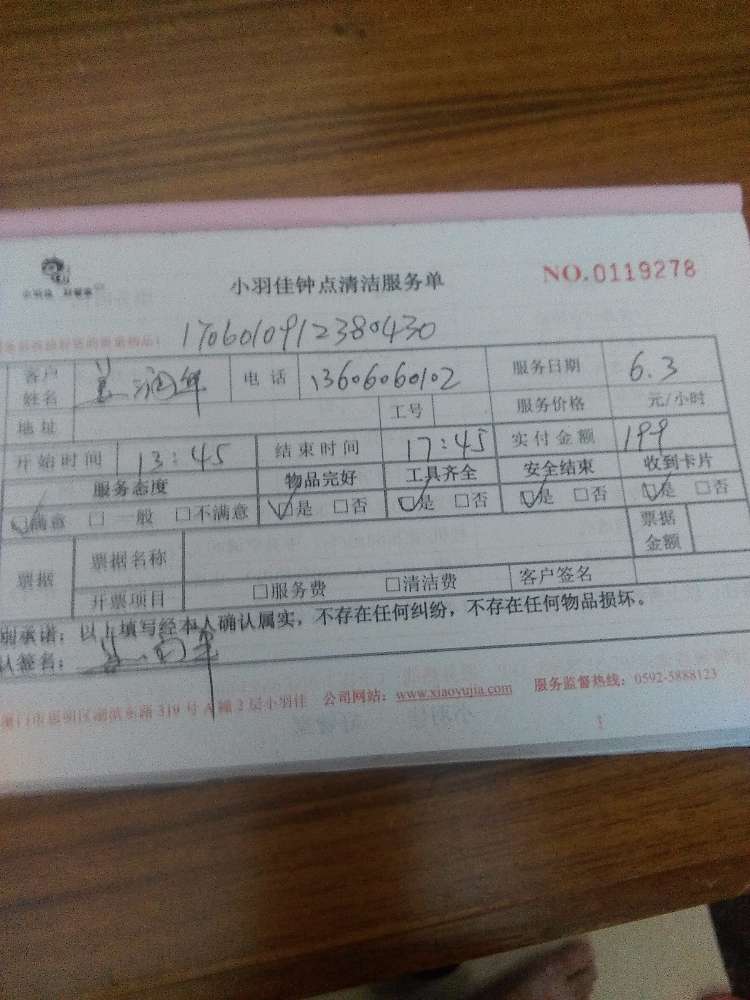 小羽佳钟点清洁服务单 NO.0119278
1706010912380430
客户姓名 电话 13606060102 服务日期 6.3
地址 工号 服务价格 元/小时
开始时间 13:45 结束时间 17:45 实付金额 199
服务态度 物品完好 工具齐全 安全结束 收到卡片
满意 □一般 □不满意 是 □否 是 □否 是 □否 是 □否
票据 票据名称 票据金额
开票项目 □服务费 □清洁费 客户签名
承诺:以上填写经本人确认属实,不存在任何纠纷,不存在任何物品损坏。
认签名:
厦门市思明区湖滨东路319号A幢2层小羽佳 公司网站:www.xiaoyujia.com 服务监督热线:0592-5888123